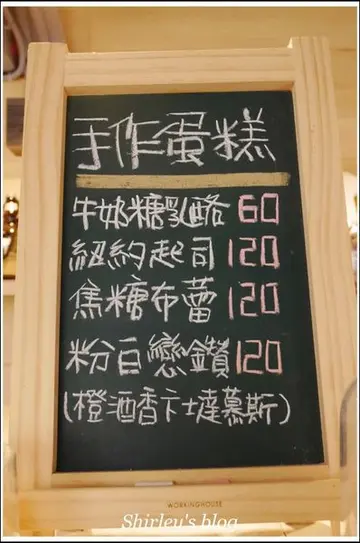 手作蛋糕
牛奶糖乳酪 60
紐約起司 120
焦糖布蕾 120
粉白戀鑽 120
(橙酒香卡士達慕斯)
WORKINGHOUSE
Shirley's blog